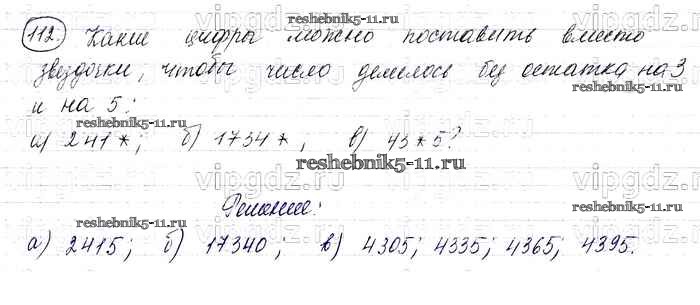 112. Какие цифры можно поставить вместо
звездочки, чтобы число делилось без остатка на 3
и на 5:
а) 241*; б) 1734*, в) 43*5?
Решение:
а) 2415; б) 17340; в) 4305; 4335; 4365; 4395.
reshebnik5-11.ru
reshebnik5-11.ru
reshebnik5-11.ru
reshebnik5-11.ru
reshebnik5-11.ru
reshebnik5-11.ru
vipgdz.ru
vipgdz.ru
vipgdz.ru
vipgdz.ru
vipgdz.ru
vipgdz.ru